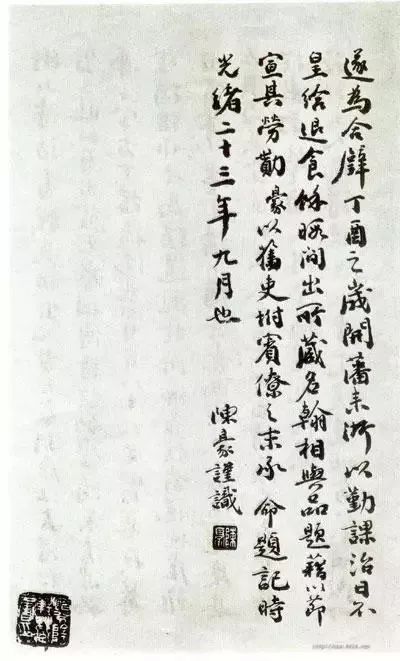 遂為合璧丁酉之歲開藩來浙以勤課治日不
皇給退食餘暇間出所藏名翰相與品題藉以節
宣其勞勩豪以舊吏坿賓僚之末承 命題記時
光緒二十三年九月也
陳豪謹識